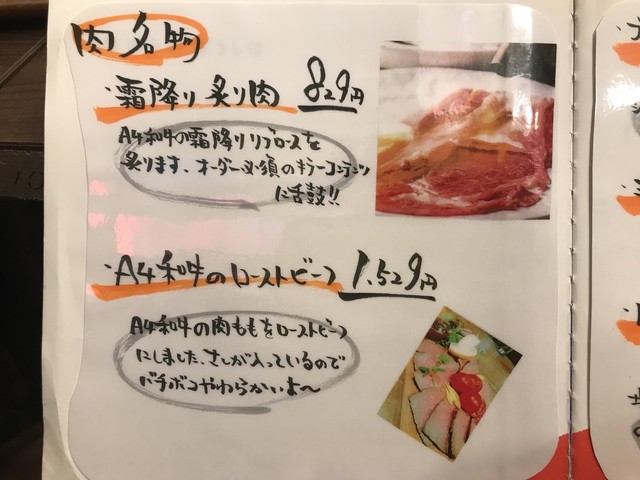 肉名物
・霜降り炙り肉 829円
A4和牛の霜降りリブロースを
炙ります、オーダー必須のキラーコンテンツ
に舌鼓!!
・A4和牛のローストビーフ 1,529円
A4和牛の肉ももをローストビーフ
にしました、さしが入っているので
バチボコやわらかいよ～